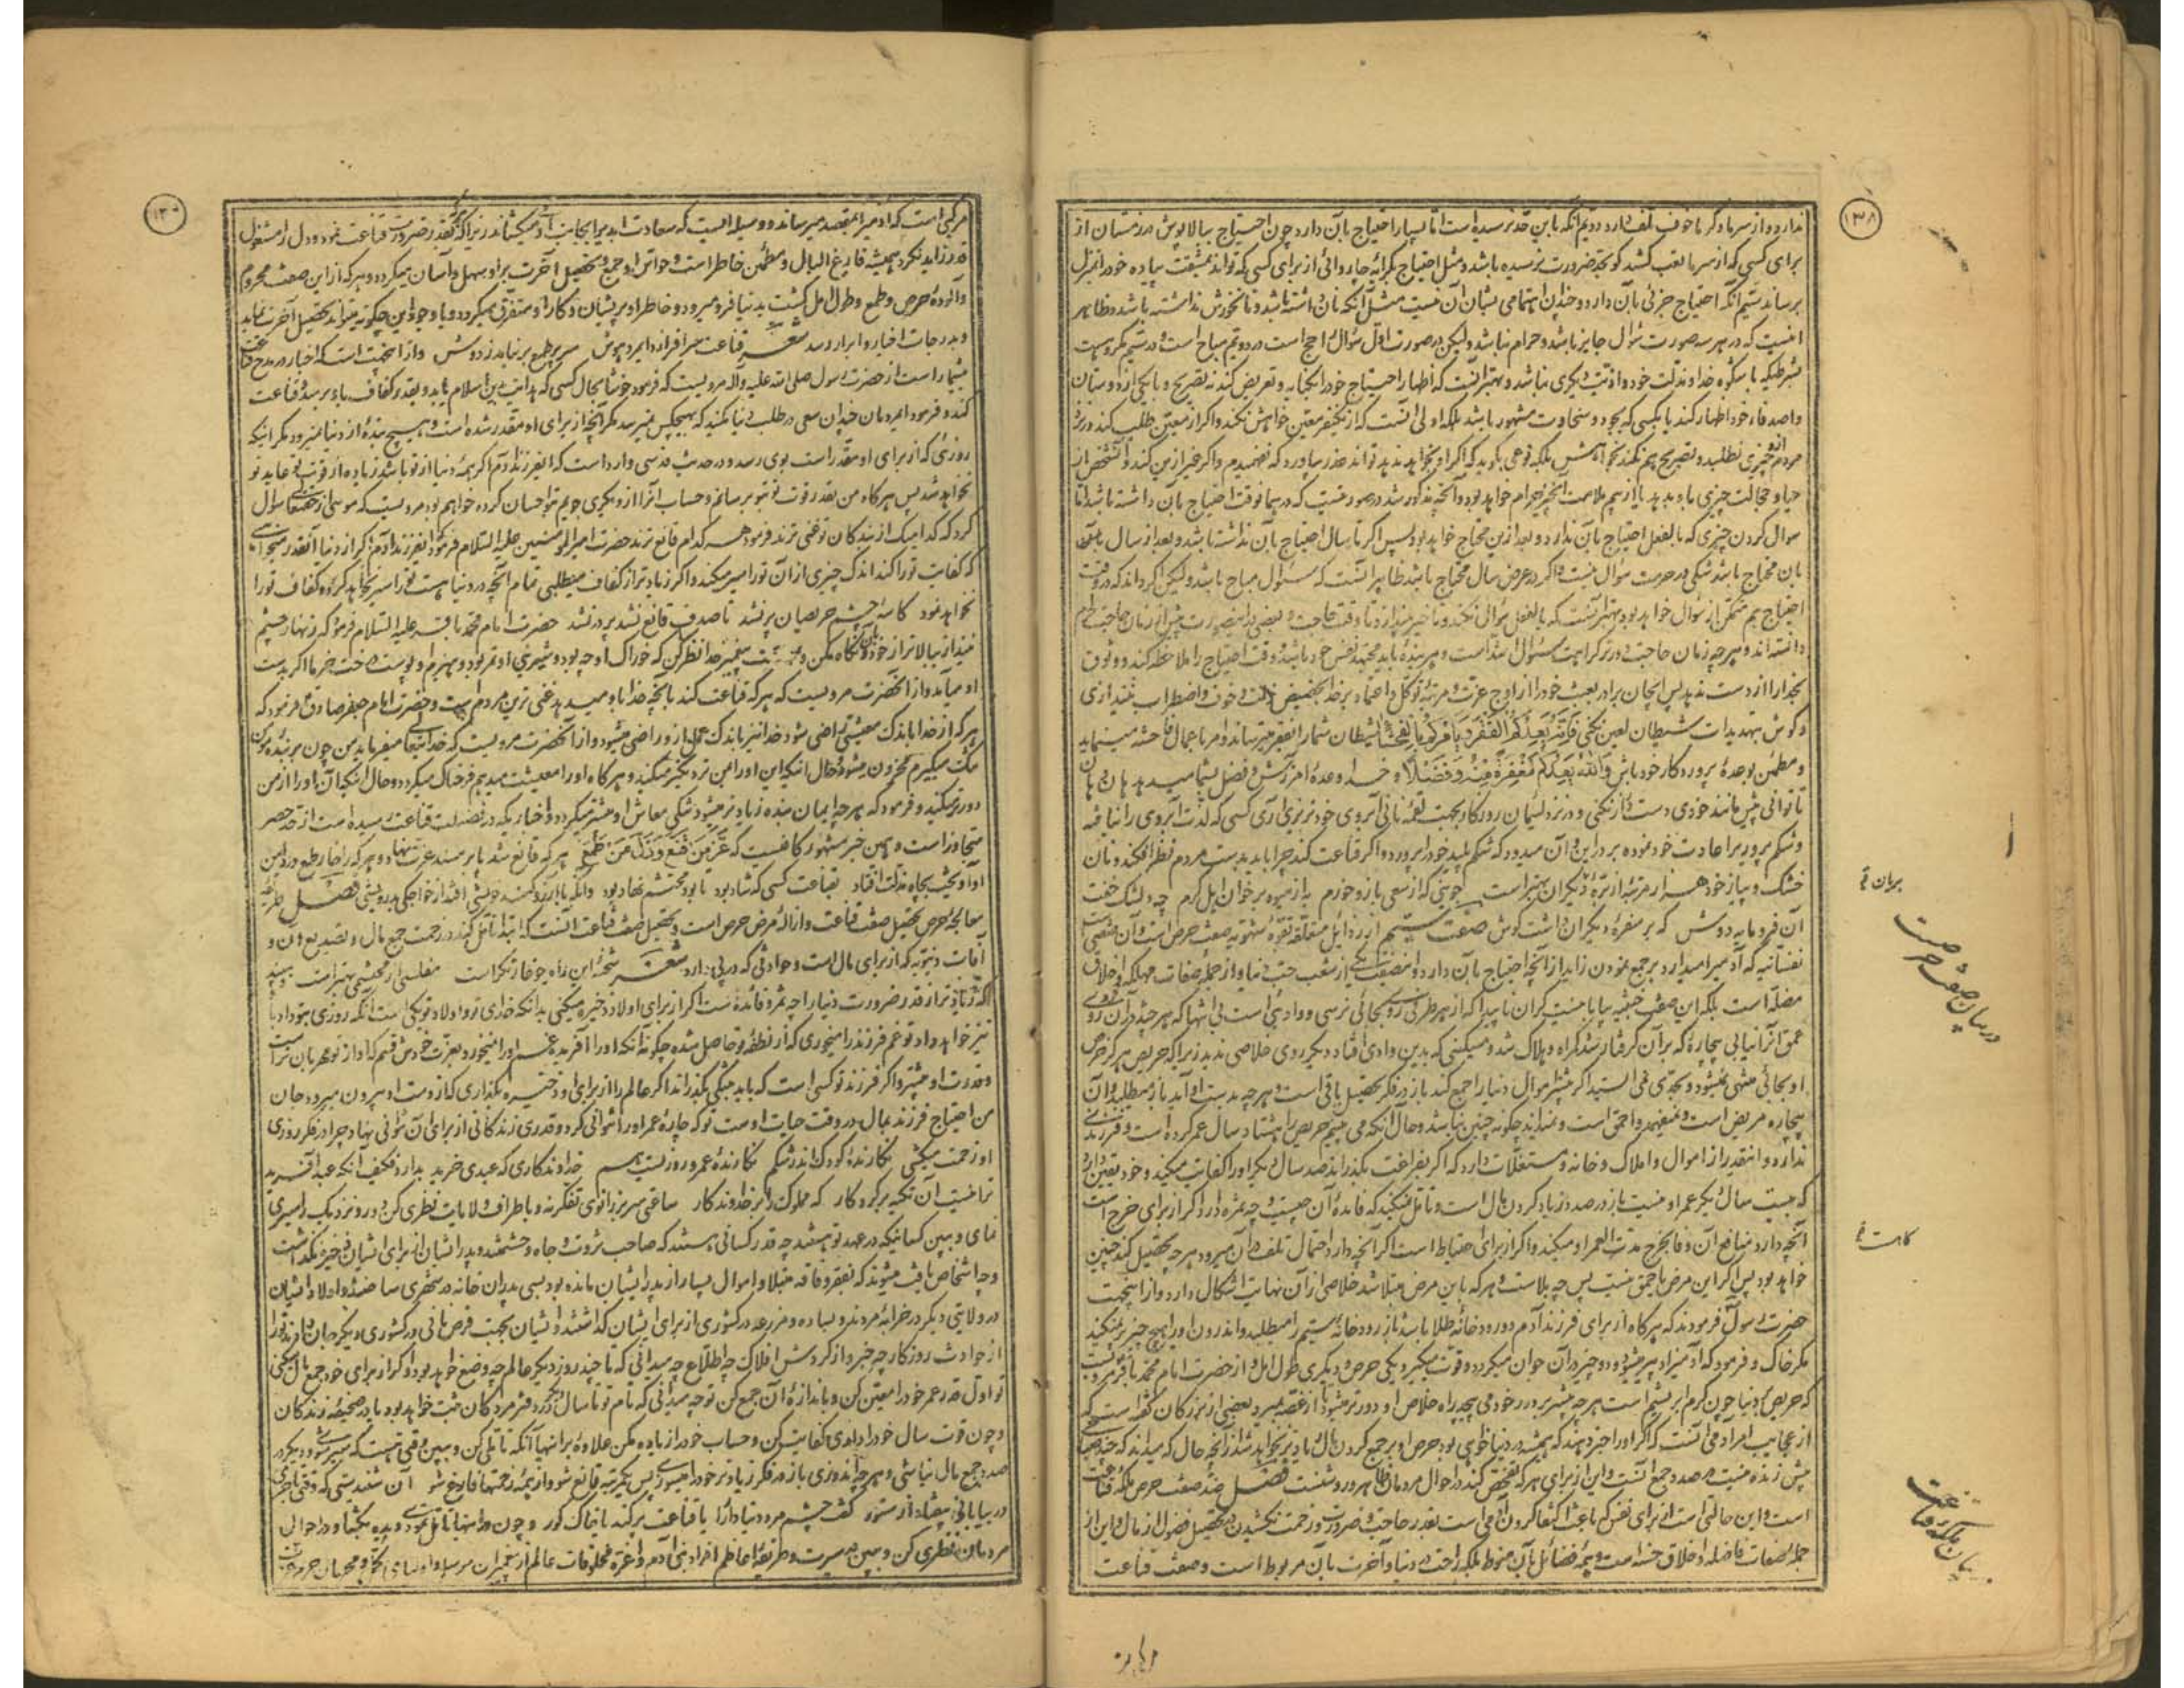 ۱۳۸
ندارد و از سرما و گرما خوف تلف ندارد دویم آنکه باین حد نرسیده است اما بسیار احتیاج بآن دارد چون احتیاج ببالاپوش در زمستان از
برای کسی که از سرما تعب کشد گو بحد ضرورت نرسیده باشد و مثل احتیاج بکرایه چاروائی از برای کسی که تواند بمشقت پیاده خود را بمنزل
برساند سیم آنکه احتیاج جزئی بآن دارد و چندان اهتمامی بشان آن نیست مثل آنکه نان داشته باشد و نانخورش نداشته باشد و ظاهر
اینست که در هر سه صورت سؤال جایز باشد و حرام نباشد ولیکن در صورت اول سؤال راجح است در دویم مباح است و در سیم مکروهست
بشرطیکه با شکوه خدا و مذلت خود و اذیت دیگری نباشد و بهتر آنست که اظهار احتیاج خود را بکنایه و تعریض کند نه بتصریح و بایکی از دوستان
و اصدقاء خود اظهار کند یا بکسی که بجود و سخاوت مشهور باشد بلکه اولی آنست که از یکنفر معین خواهش نکند و اگر از معین طلب کند در نزد
مردم از او چیزی نطلبد و تصریح هم نکند بخواهش بلکه نوعی بگوید که اگر او نخواهد بدهد تواند عذر بیاورد که نفهمیدم و اگر غیر از این کند و آنشخص از
حیا و خجالت چیزی باو بدهد یا از بیم ملامت آنچیز حرام خواهد بود و آنچه مذکور شد در صورتیست که در همانوقت احتیاج بآن داشته باشد اما
سؤال کردن چیزی که بالفعل احتیاج بآن ندارد و بعد از این محتاج خواهد بود پس اگر تا سال احتیاج بآن نداشته باشد و بعد از سال
بآن محتاج باشد شکی در حرمت سؤال نیست و اگر در عرض سال محتاج باشد ظاهر آنست که سؤال مباح باشد ولیکن اگر داند که در وقت
احتیاج هم متمکن از سؤال خواهد بود بهتر آنست که بالفعل سؤال نکند و تاخیر بیندازد تا وقت حاجت و بعضی در اینصورت پیش از زمان حاجت حرام
دانسته اند و هر چه زمان حاجت دورتر کراهت سؤال اشد است و هر بنده باید مجتهد نفس خود باشد و وقت احتیاج را ملاحظه کند و وثوق
بخدا را از دست ندهد پس ایجان برادر بعبث خود را از اوج عزت و مرتبه توکل و اعتماد بر خدا بحضیض ذلت و خوف و اضطراب نیندازی
و گوش بتهدیدات شیطان لعین نکنی فَإِنَّهُ يَعِدُكُمُ الْفَقْرَ وَيَأْمُرُكُمْ بِالْفَحْشَاءِ شیطان شما را بفقر میترساند و امر باعمال فاحشه مینماید
و مطمئن بوعده پروردگار خود باش وَاللهُ يَعِدُكُمْ مَغْفِرَةً مِنْهُ وَفَضْلًا و خدا وعده آمرزش و فضل بشما میدهد هان هان
تا توانی پیش مانند خودی دست دراز نکنی و در نزد لئیمان روزگار بجهت لقمه نانی آبروی خود نریزی آری کسی که لذت آبروی را نیافته
و شکم پرور برا عادت خود نموده بر در این و آن میدود که شکم پلید خود را پرورد و اگر قناعت کند چرا باید بدست مردم نظر افکند و نان
خشک و پیاز خود هزار مرتبه از بره دیگران بهتر است جوینی که از سعی بازو خورم به از میوه بر خوان اهل کرم چه دلتنگ خفت
آن فرومایه دوش که بر سفره دیگران داشت گوش صفت ششم از رذایل متعلقه بقوه شهویه صفت حرص است و آن صفتی است
نفسانیه که آدمی را میدارد بر جمع نمودن زاید از آنچه احتیاج بآن دارد و این صفت یکی از شعب حب دنیا و از جمله صفات مهلکه و اخلاق
مضله است بلکه این صفت خبیثه بیابانیست کران ناپیدا که از هر طرف روی بجائی نرسی و وادیئی است بی انتها که هر چند در آن روی
عمق آنرا نیابی بیچاره که بر آن گرفتار شد گمراه و هلاک شد و مسکینی که بدین وادی افتاد دیگر روی خلاصی ندید زیرا که حریص هرگز حرص
او بجائی منتهی نمیشود و بحدی نمی ایستد اگر بیشتر اموال دنیا را جمع کند باز در فکر تحصیل باقی است و هر چه بدست او آید باز میطلبد و آن
بیچاره مریض است و نمیفهمد و احمق است و نمیداند چگونه چنین نباشد و حال آنکه می بینیم حریص را هشتاد سال عمر کرده است و فرزندی
ندارد و آنقدر از اموال و املاک و خانه و مستغلات دارد که اگر بفراغت بگذراند صد سال دیگر او را کفایت میکند و خود یقین دارد
که بیست سال دیگر عمر او نیست باز در صدد زیاد کردن مال است و تامل نمیکند که فایده آن چیست و چه ثمره دارد اگر از برای خرج است
آنچه دارد منافع آن وفا بخرج مدت العمر او میکند و اگر از برای احتیاط است اگر آنچه دارد احتمال تلف در آن میرود هر چه تحصیل کند چنین
خواهد بود پس اگر این مرض یا حمق نیست پس چه بلاست و هر که باین مرض مبتلا شد خلاصی از آن نهایت اشکال دارد و از اینجهت
حضرت رسول فرمودند که هر گاه از برای فرزند آدم دو رودخانه طلا باشد باز رودخانه سیم را میطلبد و اندرون او را هیچ چیز پر نمیکند
مگر خاک و فرمود که آدمیزاد پیر میشود و دو چیز در آن جوان میگردد و قوت میگیرد یکی حرص و دیگری طول امل و از حضرت امام محمد باقر مرویست
که حریص بدنیا چون کرم ابریشم است هر چه بیشتر بر دور خود می پیچد راه خلاص او دورتر میشود تا از غصه بمیرد بعضی از بزرگان گفته است که
از عجایب امر آدمی آنست که اگر او را خبر دهند که همیشه در دنیا خواهی بود حرص او بر جمع کردن مال زیادتر نخواهد شد از آنچه حال که میداند که چند صباحی
بیش زنده نیست در صدد جمع آنست و این از برای هر که تفحص کند در احوال مردمان ظاهر و روشنست فصل ضد صفت حرص ملکه قناعت
است و این حالتی است از برای نفس که باعث اکتفا کردن آدمی است بقدر حاجت و ضرورت و زحمت نکشیدن در تحصیل فضول از مال و این از
جمله صفات فاضله و اخلاق حسنه است و همه فضائل بآن منوط بلکه راحت در دنیا و آخرت بآن مربوط است و صفت قناعت
در بیان صفت حرص است
بیان ملکه قناعت
مرکبی است که آدمی را بمقصد میرساند و وسیله ایست که سعادت ابدیه را بجانب آدمی میکشاند زیرا که هر که بقدر ضرورت قناعت نمود و دل را مشغول
قدر زاید نکرد همیشه فارغ البال و مطمئن خاطر است و حواس او جمع و تحصیل آخرت بر او سهل و آسان میگردد و هر که از این صفت محروم
و آلوده حرص و طمع و طول امل گشت بدنیا فرو میرود و خاطر او پریشان و کار او متفرق میگردد و با وجود این چگونه میتواند تحصیل آخرت نماید
و بدرجات اخیار و ابرار رسد شعر قناعت سرافرازد ایمرد هوش سر پر طمع بر نیاید ز دوش و از اینجهت است که اخبار در مدح قناعت
بیشمار است از حضرت رسول صلی الله علیه و آله مرویست که فرمود خوشا بحال کسی که هدایت بدین اسلام یابد و بقدر کفاف باو برسد و قناعت
کند و فرمود ایمردمان چندان سعی در طلب دنیا نکنید که بهیچکس نمیرسد مگر آنچه از برای او مقدر شده است و هیچ بنده از دنیا نمیرود مگر اینکه
روزئی که از برای او مقدر است بوی رسد و در حدیث قدسی وارد است که ایفرزند آدم اگر همه دنیا از تو باشد زیاده از قوت تو عاید تو
نخواهد شد پس هر گاه من بقدر قوت تو بتو برسانم و حساب آنرا از دیگری جویم بتو احسان کرده خواهم بود مرویست که موسی از حقتعالی سؤال
کرد که کدامیک از بندگان تو غنی ترند فرمود هر کدام قانع ترند حضرت امیر المؤمنین علیه السلام فرمود ایفرزند آدم اگر از دنیا آنقدر میخواهی
که کفایت تو را کند اندک چیزی از آن تو را سیر میکند و اگر زیادتر از کفاف میطلبی تمام آنچه در دنیا هست تو را سیر نخواهد کرد و کفاف تو را
نخواهد نمود کاسه چشم حریصان پر نشد تا صدف قانع نشد پر در نشد حضرت امام محمد باقر علیه السلام فرمود که زنهار چشم
نیندازد ببالاتر از خود و نگاه مکن و پیغمبر خدا نظر کن که خوراک او جو بود و شیرینی او تمر بود و هیزم او پوست درخت خرما اگر بدست
او میآمد و از آنحضرت مرویست که هر که قناعت کند بآنچه خدا باو میدهد غنی ترین مردم است و حضرت امام جعفر صادق فرمود که
هر که از خدا باندک معیشتی راضی شود خدا نیز باندک عمل از او راضی میشود و از آنحضرت مرویست که خدایتعالی میفرماید من چون بر بنده مؤمن
تنگ میگیرم محزون میشود و حال اینکه این او را بمن نزدیکتر میکند و هر گاه او را معیشت میدهم فرحناک میگردد و حال اینکه آن او را از من
دورتر میکند و فرمود که هر چه ایمان بنده زیادتر میشود تنگی معاش او بیشتر میگردد و اخباریکه در فضیلت قناعت رسیده است از حد حصر
متجاوز است و همین خبر مشهور کافیست که عَزَّ مَنْ قَنَعَ وَذَلَّ مَنْ طَمَعَ هر که قانع شد پا بر مسند عزت نهاد و هر که را خار طمع در دامن
آویخت بچاه مذلت افتاد بقناعت کسی که شاد بود تا بود محتشم نهاد بود وانکه با آرزو کند خویشی افتد از خواجگی بدرویشی فصل طریقه
معالجه حرص تحصیل صفت قناعت و ازاله مرض حرص است و تحصیل صفت قناعت آنست که ابتدا تامل کند در زحمت جمع مال و تضییع آن و
آفات دنیویه که از برای مال است و حوادثی که در پی دارد شعر شحنه این راه چو غارتگر است مفلسی از محتشمی بهتر است و ببیند
که زیادتر از قدر ضرورت دنیا را چه ثمر و فائده است اگر از برای اولاد ذخیره میکنی بدانکه خدای تو و اولاد تو یکی است آنکه روزی بتو داد باو
نیز خواهد داد تو غم فرزند را میخوری که از نطفه تو حاصل شده چگونه آنکه او را آفریده غم او را نمیخورد بعزت خودش قسم که او از تو مهربان تر است
و قدرت او بیشتر و اگر فرزند تو کسی است که باید بتنگی بگذراند اگر عالم را از برای او ذخیره بگذاری که از دست او بیرون میرود و حال
من احتیاج فرزند بمال در وقت حیات اوست تو که چاره عمر او را نتوانی کرد و قدری زندگانی از برای آن نتوانی نهاد چرا در فکر روزی
او زحمت میکشی نگارنده کودک اندر شکم نگارنده عمر و روزیست هم خداوندگاری که عبدی خرید بدارد فکیف آنکه عبد آفرید
ترا نیست آن تکیه بر کردگار که مملوک را بر خداوندگار ساعتی سر بزانوی تفکر نه و باطراف ولایات نظری کن و دور و نزدیک را سیری
نمای و ببین کسانیکه در عهد تو هستند چه قدر کسانی هستند که صاحب ثروت و جاه و حشمتند و پدر ایشان از برای ایشان ذخیره نگذاشت
و چه اشخاص یافت میشوند که بفقر و فاقه مبتلا و اموال بسیار از پدر ایشان مانده بود بسی پدران خانه در شهری ساختند و اولاد ایشان
در ولایتی دیگر در خرابه مردند و بسا ده و مزرعه در کشوری از برای ایشان گذاشتند و ایشان بجهت قرص نانی در کشوری دیگر جان دادند تو را
از حوادث روزگار چه خبر و از گردش افلاک چه اطلاع چه میدانی که تا چند روز دیگر عالم چه وضع خواهد بود و اگر از برای خود جمع مال میکنی
تو اول قدر عمر خود را معین کن و باندازه آن جمع کن تو چه میدانی که نام تو تا سال دیگر در دفتر مردگان ثبت خواهد بود یا در صحیفه زندگان
و چون قوت سال خود را داری کفایت کن و حساب خود را زیاده مکن علاوه بر اینها آنکه تاملی کن و ببین وقتی هست که سیر شوی و دیگر در
صدد جمع مال نباشی و هر چه اندوزی باز در فکر زیادتر خود را میسوزی پس یکمرتبه قانع شو و از همه زحمتها فارغ شو آن شنیدستی که وقتی تاجری
در بیابانی بیفتاد از ستور گفت چشم مرد دنیادار را یا قناعت پر کند یا خاک گور و چون در اینها تامل نمودی دیده بگشا و در احوال
مردمان نظری کن و ببین سیرت و طریقه اعاظم افراد بنی آدم و اعزه مخلوقات عالم از پیغمبران مرسل و اولیای